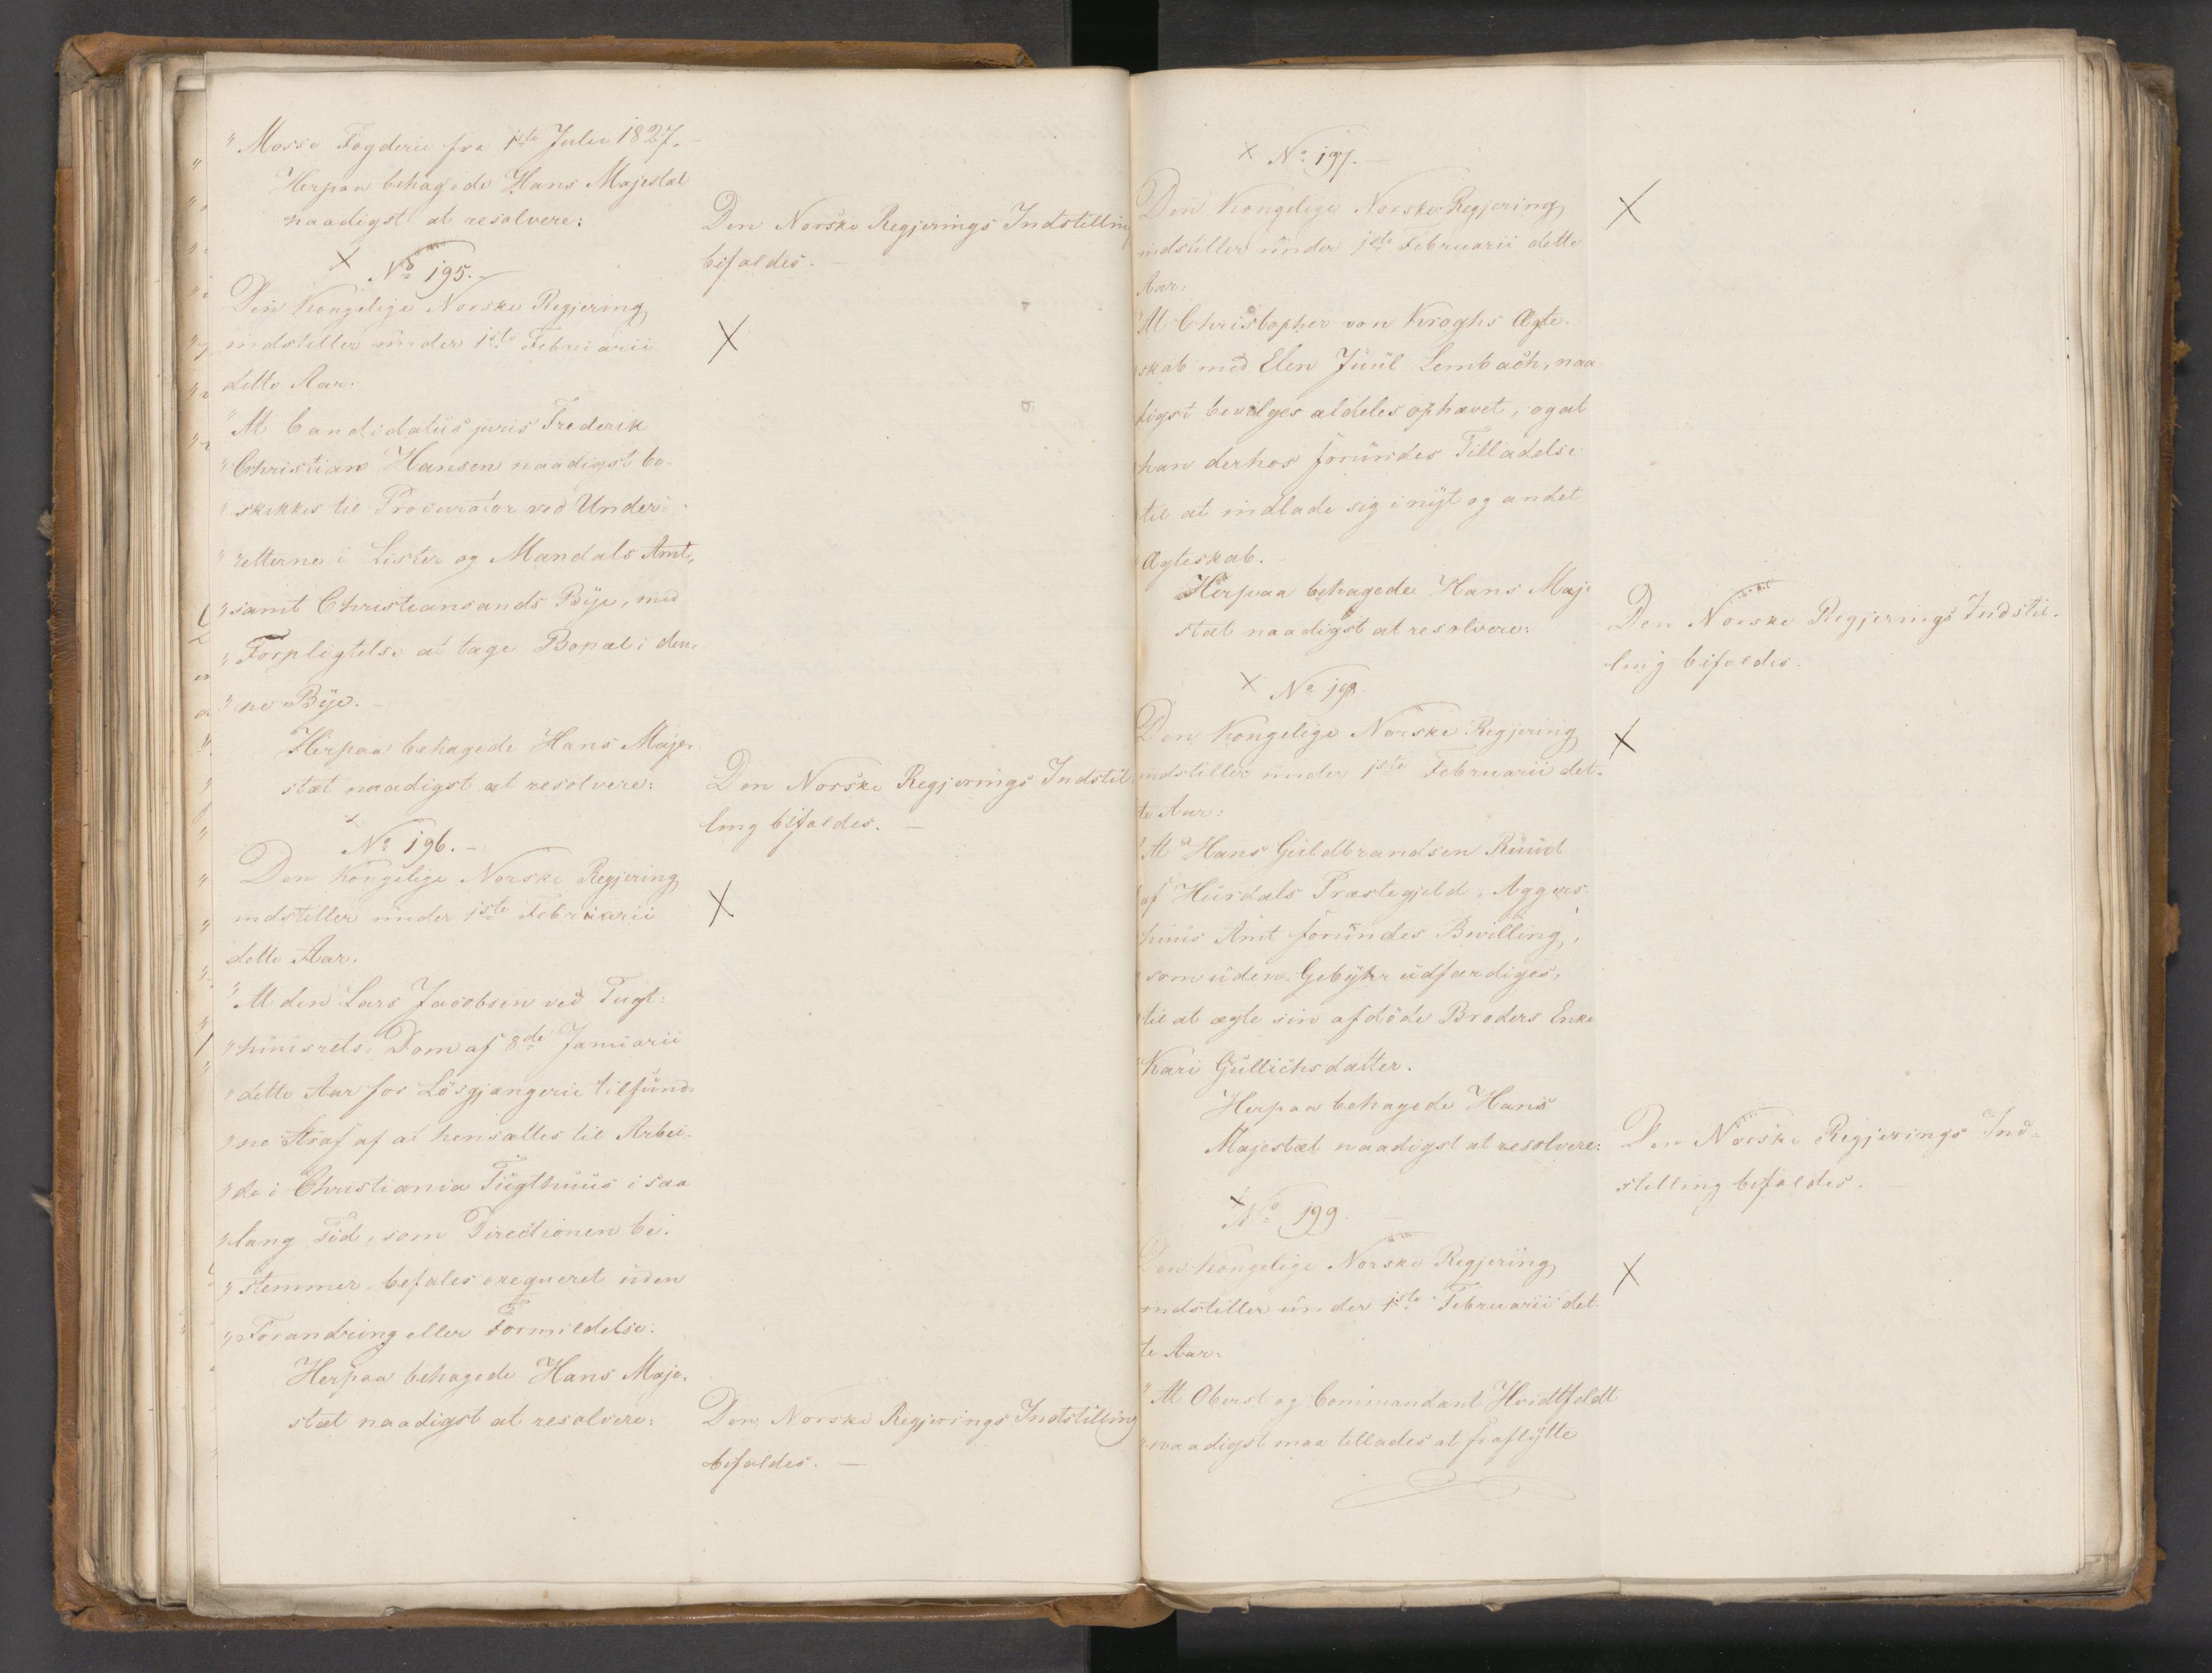 "Mosse Fogderie fra 1ste Julii 1827.
Herpaa behagede Hans Majestæt
naadigst at resolvere:
Den Norske Regjerings Indstilling
bifaldes.
X No 195.
Den Kongelige Norske Regjering
indstiller under 1ste Februarii
X
dette Aar:
"At Candidatus juris Frederik
"Christian Hansen naadigst be-
"skikkes til Procurator ved Under-
"retterne i Lister og Mandals Amt,
"samt Christiansands Bye, med
"Forpligtelse at tage Bopæl i den-
"ne Bye.
Herpaa behagede Hans Maje-
stæt naadigst at resolvere:
Den Norske Regjerings Indstil-
ling bifaldes.
X
No 196.
Den Kongelige Norske Regjering
indstiller under 1ste Februarii
X
dette Aar.
"At den Lars Jacobsen ved Tugt-
"huusrets-Dom af 8de Januarii
"dette Aar for Lösgjængerie tilfund-
"ne Straf af at hensættes til Arbei-
"de i Christiania Tugthuus i saa
"lang Tid, som Directionen be-
"stemmer, befales exequeret uden
"Forandring eller Formildelse.
Herpaa behagede Hans Maje-
stæt naadigst at resolvere:
Den Norske Regjerings Indstilling
bifaldes.
X No 197.
Den Kongelige Norske Regjering
X
indstiller under 1ste Februarii dette
Aar:
"At Christopher von Kroghs Ægte-
"skab med Elen Juul Lembach, naa-
digst bevilges aldeles ophævet, og at
han derhos forundes Tilladelse
til at indlade sig i nyt og andet
"Ægteskab.
Herpaa behagede Hans Maje-
stæt naadigst at resolvere:
Den Norske Regjerings Indstil-
ling bifaldes.
X No 198
Den Kongelige Norske Regjering
X
indstiller under 1ste Februarii det-
te Aar:
"At Hans Guldbrandsen Ruud
"af Hurdals Præstegjeld, Aggers-
huus Amt forundes Bevilling,
"som uden Gebyhr udfærdiges,
"til at ægte sin afdöde Broders Enke
"Kari Gullichsdatter.
Herpaa behagede Hans
Majestæt naadigst at resolvere:
Den Norske Regjerings Ind-
stilling bifaldes.
X No 199.
Den Kongelige Norske Regjering
X
indstiller under 1ste Februarii det-
te Aar:
"At Oberst og Commandant Hvidtfeldt
"naadigst maa tillades at fraflytte